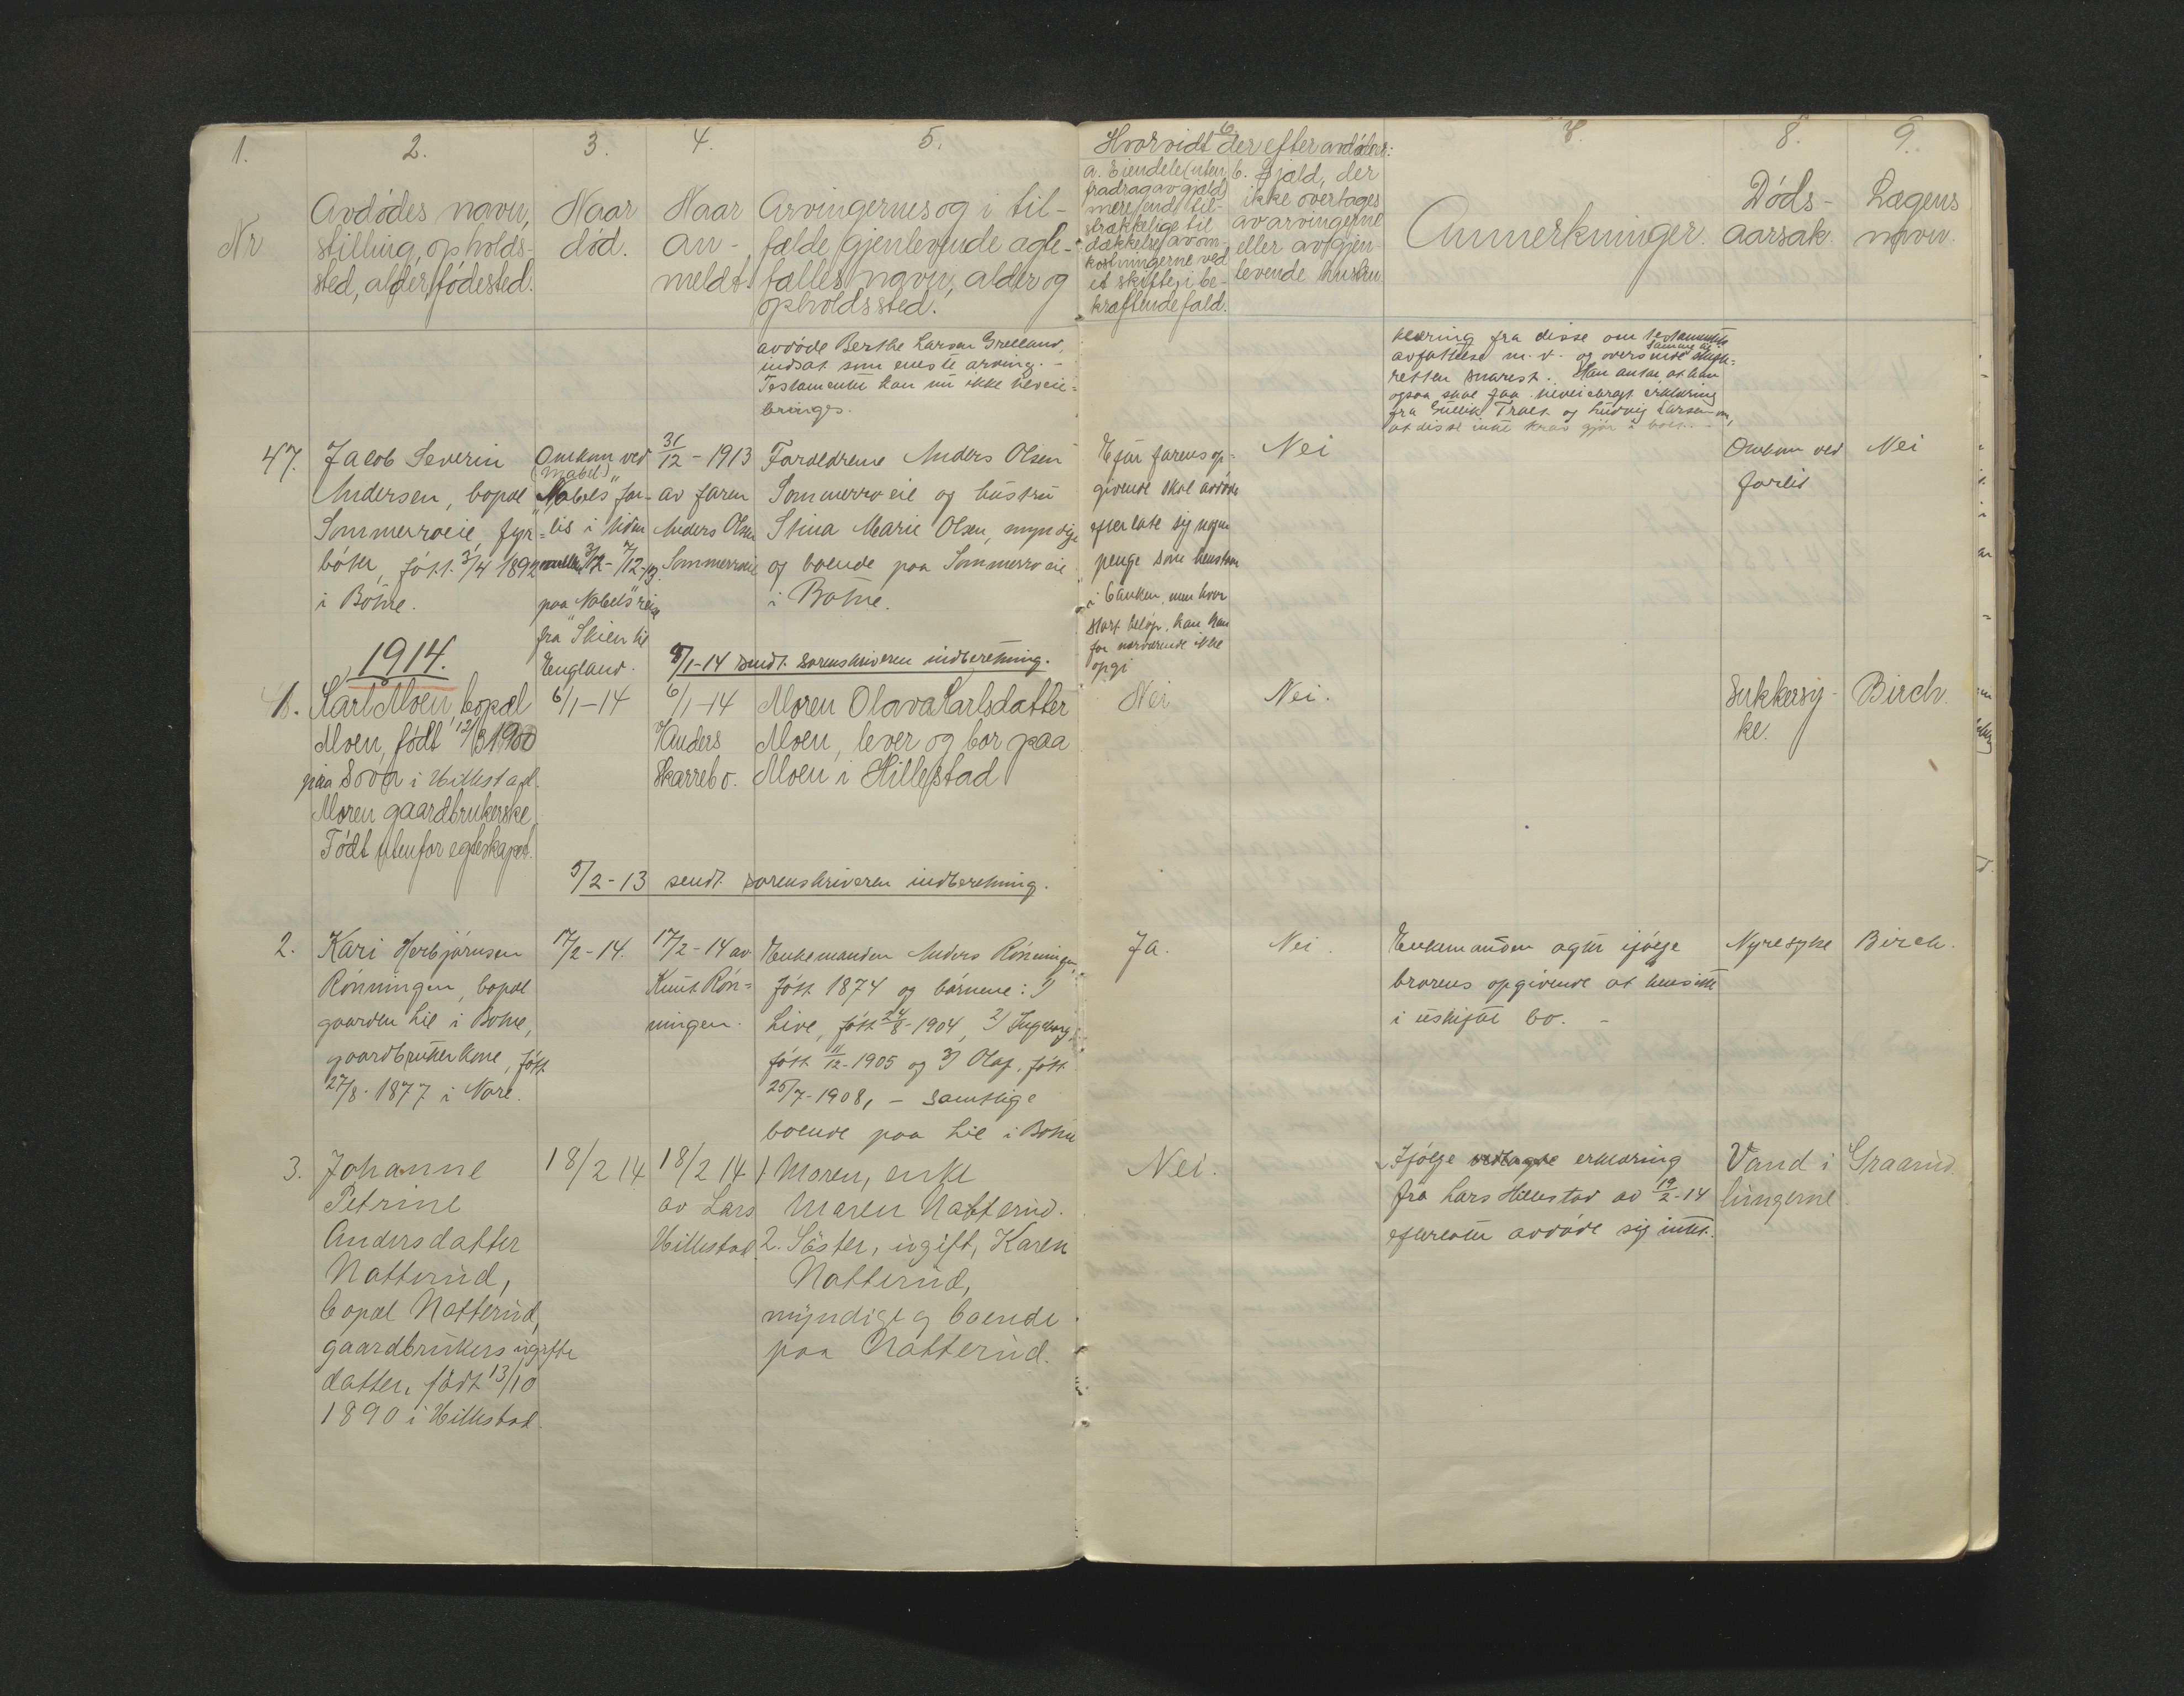 1.
2.
3.
4.
5.
6.
8.
9.
Nr
Avdødes navn,
stilling, opholds-
sted, alder, fødested.
Naar
død.
Naar
an-
meldt.
Arvingernes og i til-
fælde gjenlevende ægte-
fælles navn, alder og
opholdssted.
Hvorvidt der efter avdødes:
a. Eiendele (uten
fradrag av gjæld)
mere end til-
strækkelige til
dækkelse av om-
kostningerne ved
et skifte, i be-
kræftende fald.
b. Gjæld, der
ikke overtages
av arvingerne
eller av gjen-
levende hustru
Anmerkninger.
Døds-
aarsak.
Lægens
navn.
avdøde Berthe Larsen Grelland,
indsat som eneste arving. -
Testamentet kan nu ikke tilveie-
bringes.
klæring fra disse om testamentets
avfattelse m.v. og oversende samme til skifte-
retten snarest. Han antar at han
ogsaa skal faa tilveiebragt erklæring
fra Gullik Traet og Ludvig Larsen om,
at disse intet krav gjør i boet. -
47.
Jacob Severin
Andersen, bopæl
Sommerroeie, fyr-
bøter, født 3/4 1892
i Botne.
Omkom ved
(Mabel)
"Nobels" for-
lis i tiden
mellem 3/12 - 7/12-13.
paa "Nobels" reise
fra Skien til
England.
31/12 - 1913
av faren
Anders Olsen
Sommerroeie
Forældrene Anders Olsen
Sommerroeie og hustru
Stina Marie Olsen, myndige
og boende paa Sommerroeie
i Botne.
Efter farens op-
givende skal avdøde
efterlate sig nogen
penge som henstaar
i banken, men hvor
stort beløp, kan han
for nærværende ikke
opgi
Nei
Omkom ved
forlis
Nei
1914.
8/1-14 sendt sorenskriveren indberetning.
1.
Karl Moen, bopæl
Moen, født 12/3 1900
paa Sova i Hillestad.
Moren gaardbrukerske.
Født utenfor egteskapet.
6/1-14
6/1-14
Anders
Skarrebo.
Moren Olava Karlsdatter
Moen, lever og bor paa
Moen i Hillestad
Nei
Nei.
Sukkersy-
ke.
Birch.
5/2-13 sendt sorenskriveren indberetning.
2.
Kari Herbjørnsen
Rønningen, bopæl
gaarden Lie i Botne,
gaardbrukerkone, født
27/8-1877 i Nore.
17/2-14.
17/2-14 av
Knut Røn-
ningen.
Enkemanden Anders Rønningen,
født 1874 og børnene: 1)
Live, født 24/8-1904, 2) Ingeborg,
født 11/12-1905 og 3) Olaf, født
25/7-1908, - samtlige
boende paa Lie i Botne
Ja.
Nei.
Enkemanden agter ifølge
brorens opgivende at hensitte
i uskiftet bo. -
Nyresyke
Birch.
3.
Johanne
Petrine
Andersdatter
Natterud,
bopæl Natterud,
gaardbrukers ugifte
datter, født 13/10
1890 i Hillestad.
18/2 14
18/2 14
av Lars
Hillestad
1 Moren, enke
Maren Natterud.
2. Søster, ugift, Karen
Natterud,
myndige og boende
paa Natterud.
Nei.
Ifølge vedlagte erklæring
fra Lars Hillestad av 19/2-14
efterlater avdøde sig intet.
Vand i
lungerne
Graarud.